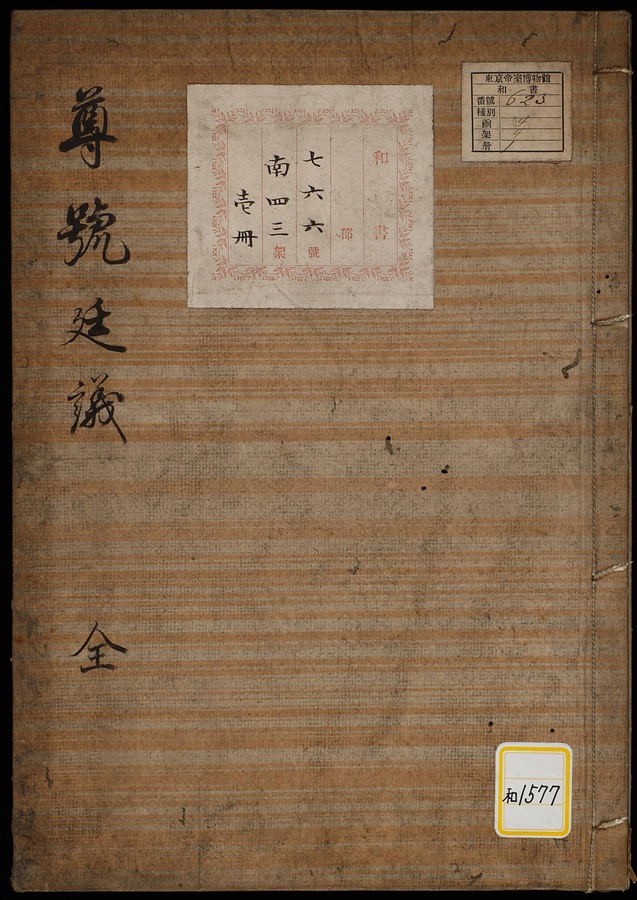 東京帝室博物館
和書
番號 623
種別
函 4
架 4
册 1
和書
部
七六六號
南四三架
壱冊
尊號廷議 全
和1577